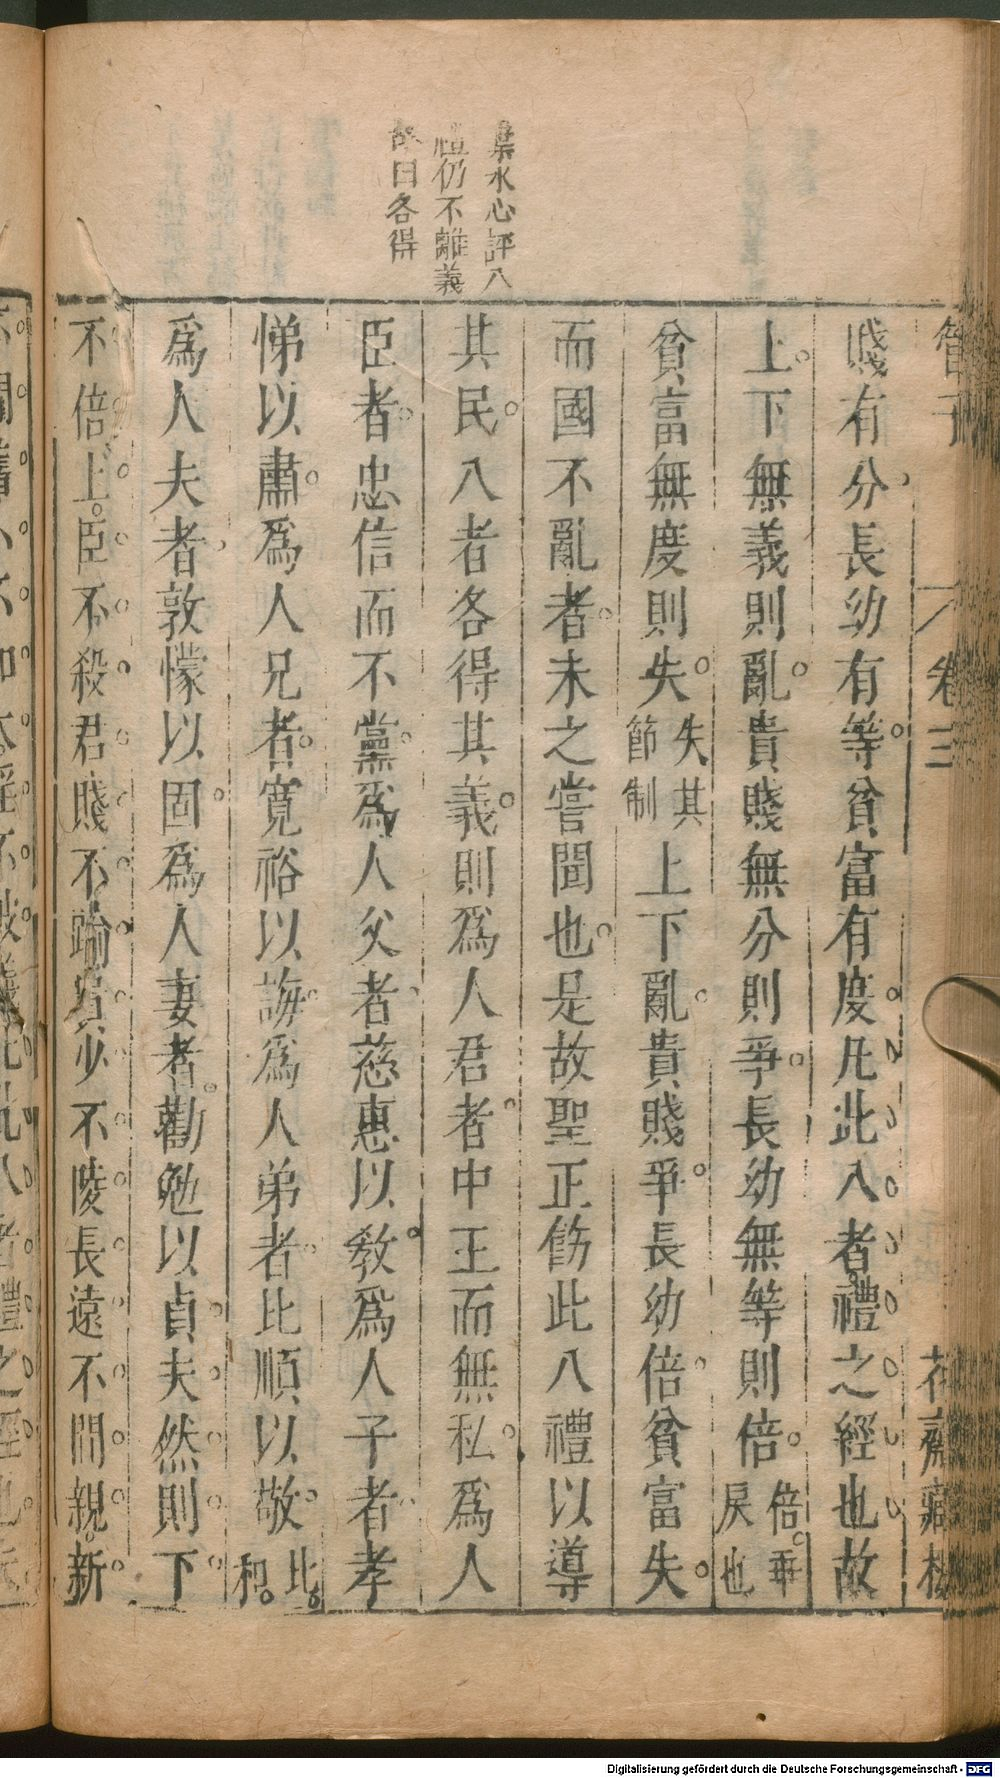 管子
卷三
花齋藏板
葉水心評八
禮仍不離義
故曰各得
賤有分長幼有等貧富有度凡此八者禮之經也故
上下無義則亂貴賤無分則爭長幼無等則倍倍乖戾也
貧富無度則失失其節制上下亂貴賤爭長幼倍貧富失
而國不亂者未之嘗聞也是故聖正飭此八禮以導
其民八者各得其義則爲人君者中正而無私爲人
臣者忠信而不黨爲人父者慈惠以敎爲人子者孝
悌以肅爲人兄者寬裕以誨爲人弟者比順以敬比和
爲人夫者敦懞以固爲人妻者勸勉以貞夫然則下
不倍上臣不殺君賤不踰貴少不陵長遠不間親新
不間舊小不加大淫不破義凡此八者禮之經也夫
Digitalisierung gefördert durch die Deutsche Forschungsgemeinschaft - DFG